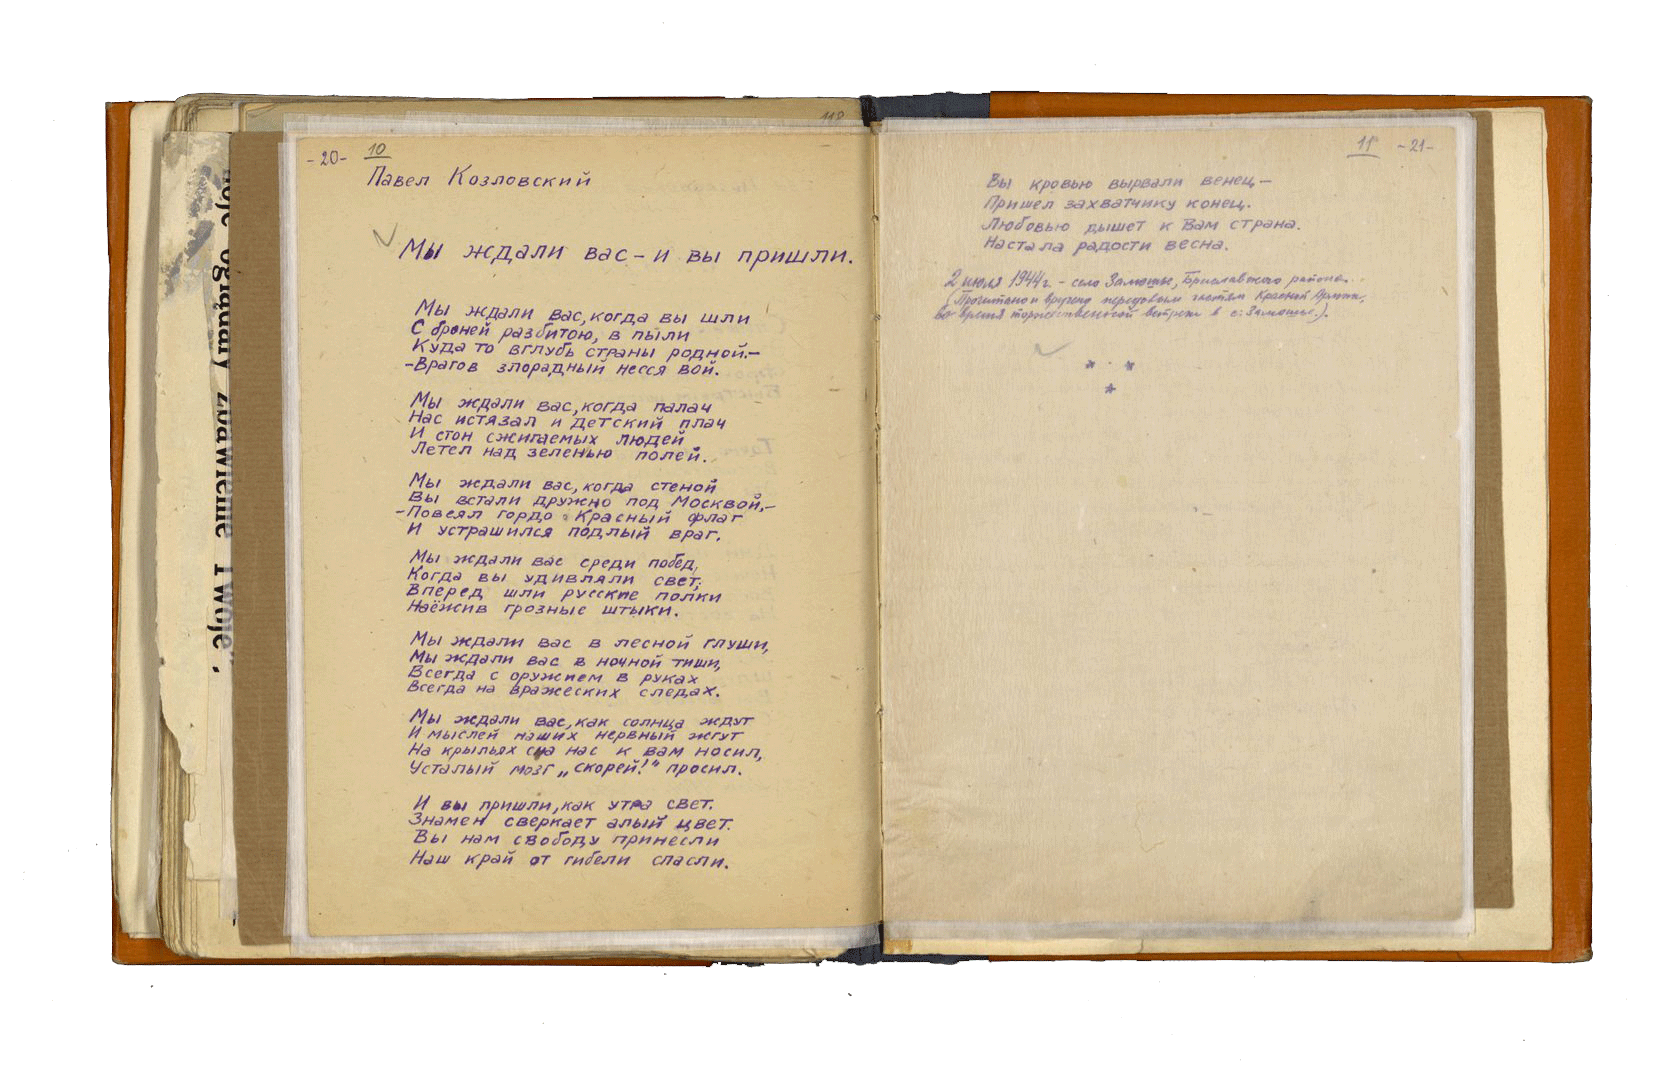 118
- 20 -
10
Павел Козловский
Мы ждали вас – и вы пришли.
Мы ждали вас, когда вы шли
С броней разбитою, в пыли
Куда то вглубь страны родной.–
–Врагов злорадный несся вой.
Мы ждали вас, когда палач
Нас истязал и детский плач
И стон сжигаемых людей
Летел над зеленью полей.
Мы ждали вас, когда стеной
Вы встали дружно под Москвой,–
–Повеял гордо Красный флаг
И устрашился подлый враг.
Мы ждали вас среди побед,
Когда вы удивляли свет;
Вперед шли русские полки
Наёжив грозные штыки.
Мы ждали вас в лесной глуши,
Мы ждали вас в ночной тиши,
Всегда с оружием в руках
Всегда на вражеских следах.
Мы ждали вас, как солнца ждут
И мыслей наших нервный жгут
На крыльях сна нас к вам носил,
Усталый мозг „скорей!“ просил.
И вы пришли, как утра свет.
Знамен сверкает алый цвет.
Вы нам свободу принесли
Наш край от гибели спасли.
11
- 21 -
Вы кровью вырвали венец –
Пришел захватчику конец.
Любовью дышет к Вам страна.
Настала радости весна.
2 июля 1944 г. – село Замошье, Браславского района.
(Прочитано и вручено передовым частям Красной Армии,
во время торжественной встречи в с. Замошье.).
* * *
noje oglądały zbawienie Twoje".